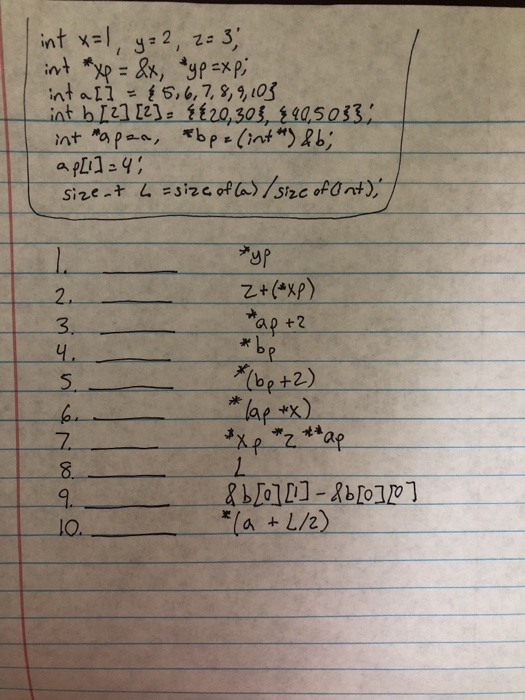 int x=1, y=2, z=3;
int *xp = &x, *yp=xp;
int a[] = {5,6,7,8,9,10}
int b[2][2]= {{20,30}, {40,50}};
int *ap=a, *bp=(int*) &b;
ap[1]=4;
size_t L =sizeof(a)/sizeof(int);
1. ______ *yp
2. ______ z+(*xp)
3. ______ *ap+2
4. ______ *bp
5. ______ *(bp+2)
6. ______ *(ap+x)
7. ______ *xp *z **ap
8. ______ L
9. ______ &b[0][1]-&b[0][0]
10. ______ *(a + L/2)